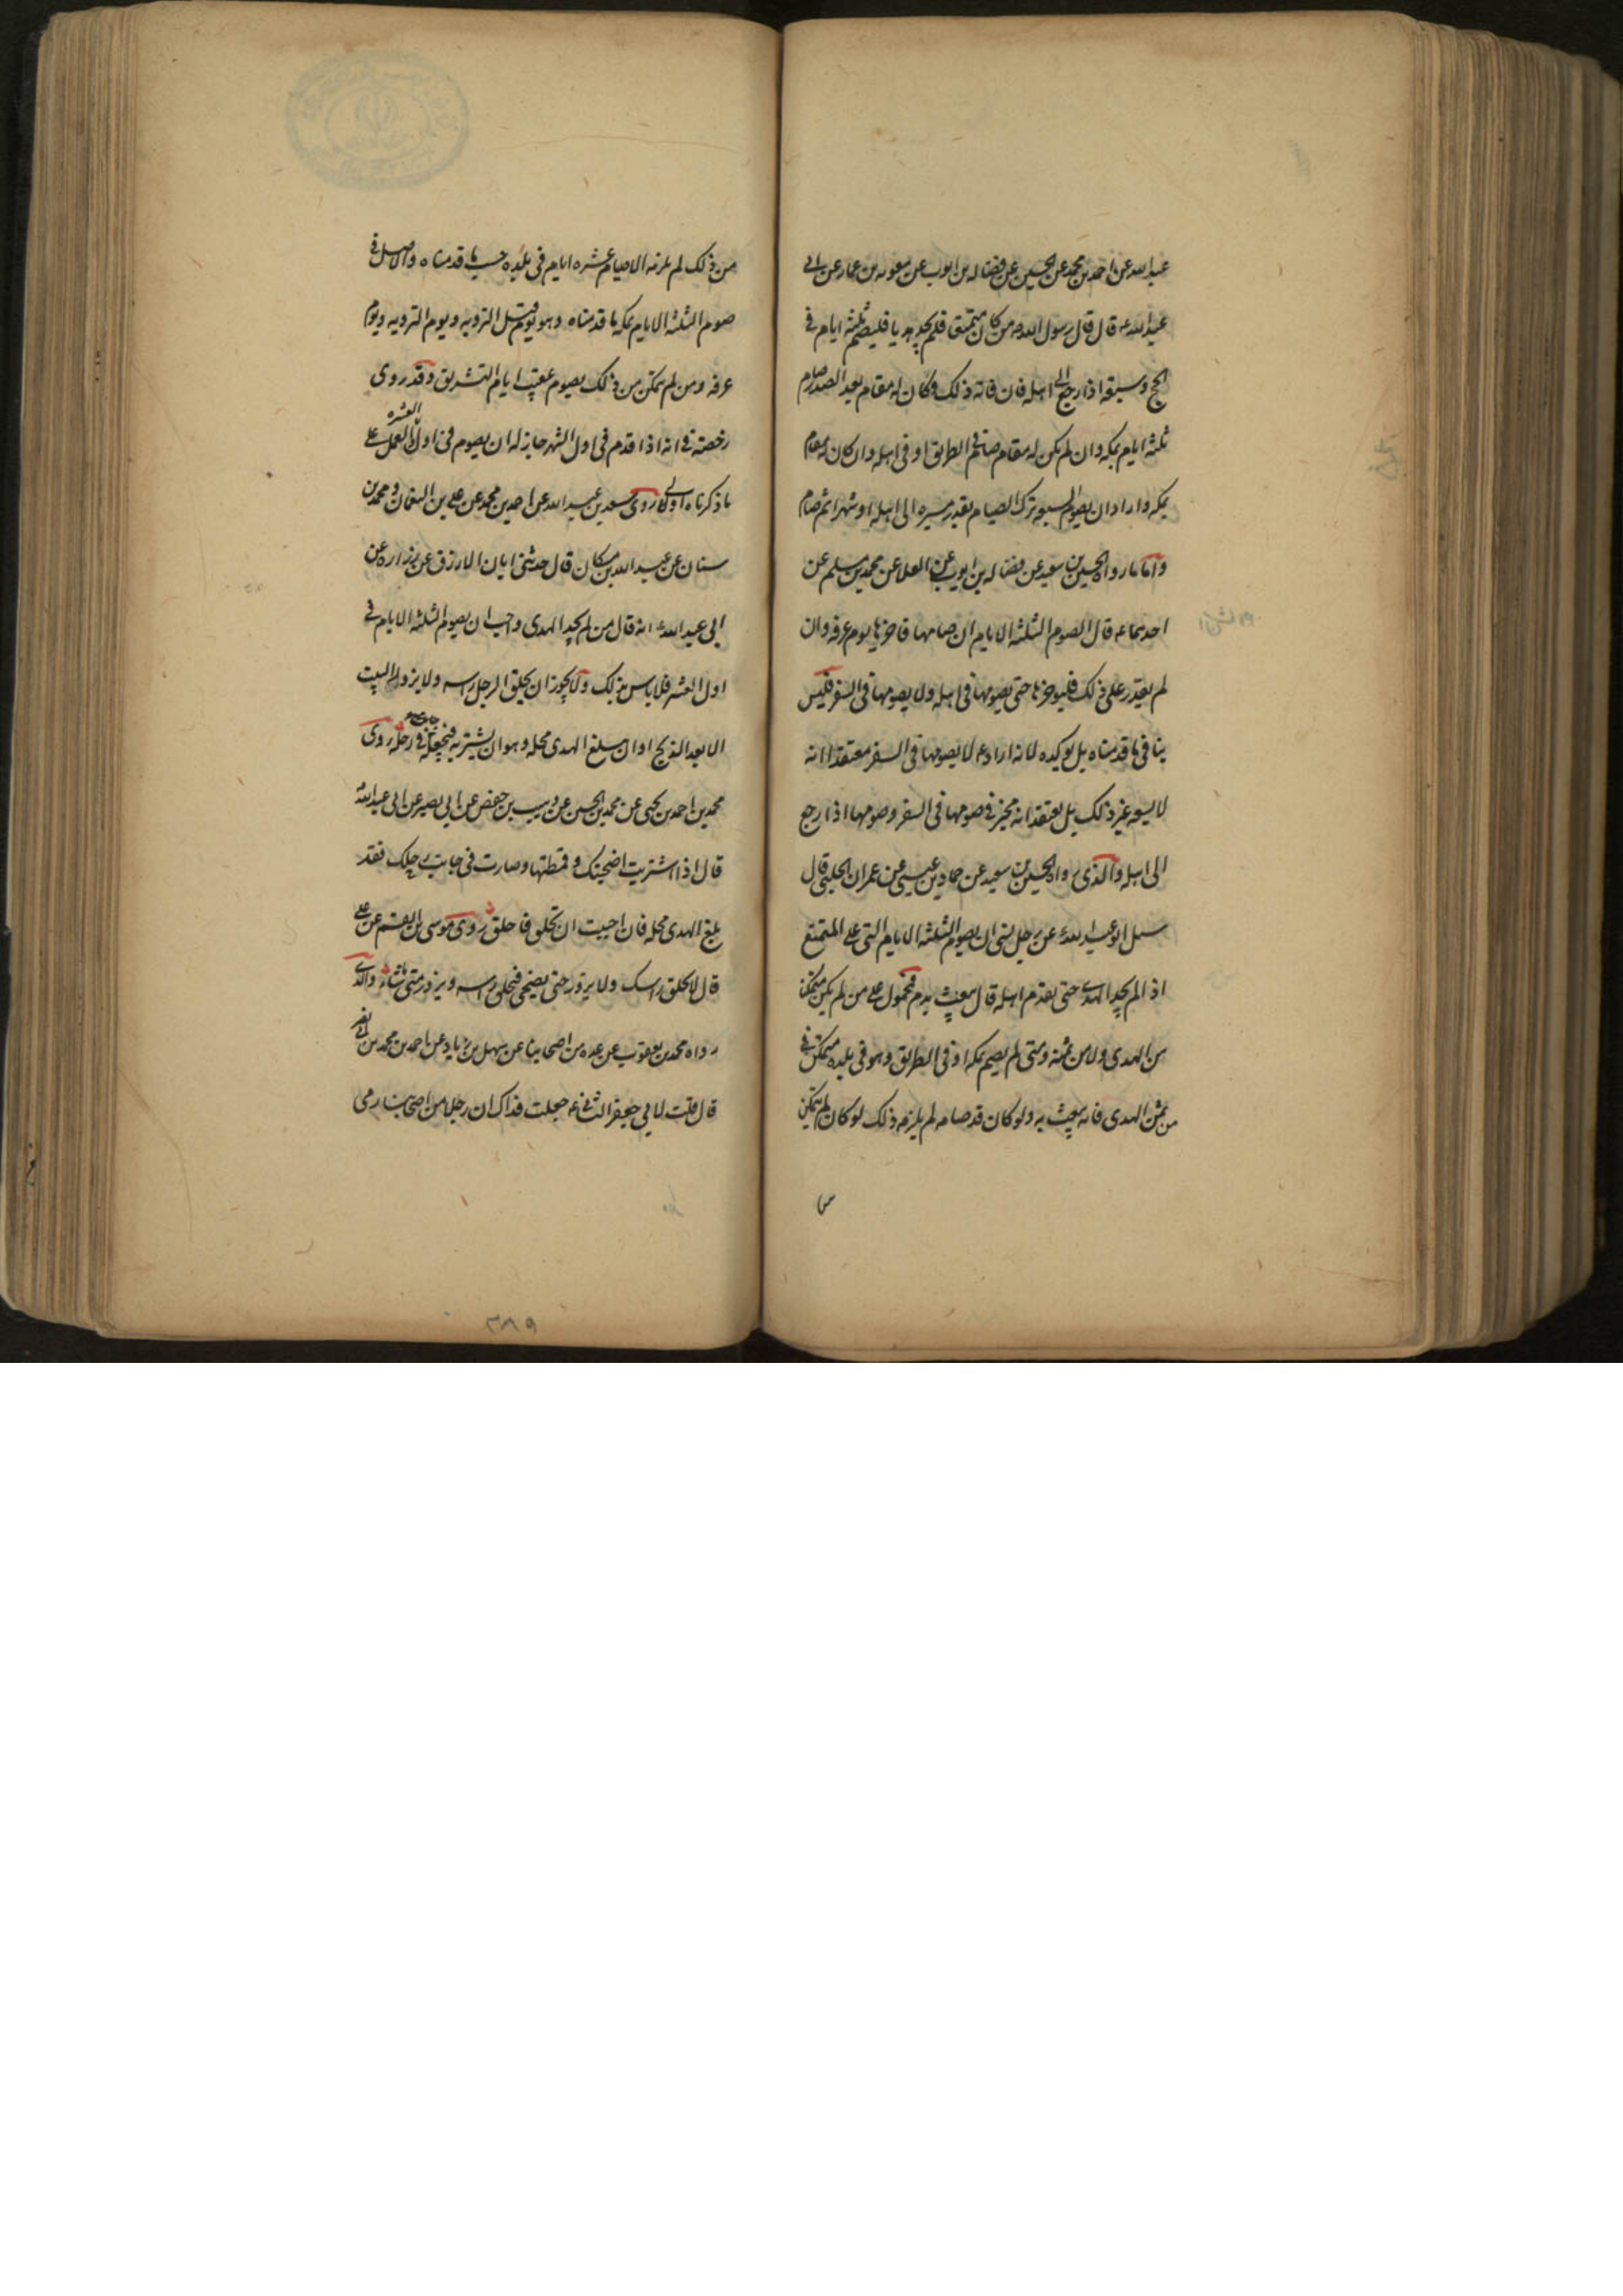 عبدالله عن احمد بن محمد عن الحسين عن فضاله بن ايوب عن معويه بن عمار عن ابى
عبدالله ع قال قال رسول الله ص من كان متمتعا فلم يجد هديا فليصم ثلثه ايام فى
الحج وسبعه اذا رجع الى اهله فان فاته ذلك وكان له مقام بعد الصدر صام
ثلثه ايام بمكه وان لم يكن له مقام صام فى الطريق او فى اهله وان كان له مقام
بمكه واراد ان يصوم السبعه ترك الصيام بقدر مسيره الى اهله او شهرا ثم صام
واما ما رواه الحسين بن سعيد عن فضاله بن ايوب عن العلا عن محمد بن مسلم عن
احدهما ع قال الصوم الثلثه الايام ان صامها فاخرها يوم عرفه وان
لم يقدر على ذلك فليوخرها حتى يصومها فى اهله ولا يصومها فى السفر فليس
ينافى ما قدمناه بل يوكده لانه اراد ع لا يصومها فى السفر معتقدا انه
لا يسعه غير ذلك بل يعتقد انه مخير فى صومها فى السفر وصومها اذا رجع
الى اهله والذى رواه الحسين بن سعيد عن حماد بن عيسى عن عمران الحلبى قال
سئل ابو عبدالله ع عن رجل نسى ان يصوم الثلثه الايام التى على المتمتع
اذا لم يجد الهدى حتى يقدم اهله قال يبعث بدم فمحمول على من لم يكن متمكنا
من الهدى ولا من ثمنه ومتى لم يصم بمكه او فى الطريق وهو فى بلده متمكن فى
من ثمن الهدى فانه يبعث به ولو كان قد صامه لم يلزمه ذلك لو كان لم يتمكن
من ذلك لم يلزمه الا صيام عشره ايام فى بلده حسب ما قدمناه والاصل فى
صوم الثلثه الايام بمكه ما قدمناه وهو يوم قبل الترويه ويوم الترويه ويوم
عرفه ومن لم يتمكن من ذلك يصوم عقيب ايام التشريق وقد روى
رخصته فى انه اذا قدم فى اول الشهر جاز له ان يصوم فى اول العشره والعمل على
ما ذكرناه اولى روى سعد بن عبد الله عن احمد بن محمد عن على بن النعمان ومحمد بن
سنان عن عبد الله بن مسكان قال حدثنى ابان الازرق عن زراره عن
ابى عبدالله ع انه قال من لم يجد الهدى واحب ان يصوم الثلثه الايام فى
اول العشر فلا باس بذلك ولا يجوز ان يحلق الرجل راسه ولا يزور البيت
الا بعد الذبح او ان يبلغ الهدى محله وهو ان يشتريه فيجعله فى رحله روى
محمد بن احمد بن يحيى عن محمد بن الحسين عن وهيب بن حفص عن ابى بصير عن ابى عبدالله ع
قال اذا اشتريت اضحيتك وقمطتها وصارت فى جانب رحلك فقد
بلغ الهدى محله فان احببت ان تحلق فاحلق روى موسى بن القسم عن على
قال لا يحلق راسك ولا يزور حتى يضحى فيحلق راسه ويزور متى شاء والذى
رواه محمد بن يعقوب عن عده من اصحابنا عن سهل بن زياد عن احمد بن محمد بن ابى نصر
قال قلت لابى جعفر الثانى ع جعلت فداك ان رجلا من اصحابنا رمى
٣٨٩